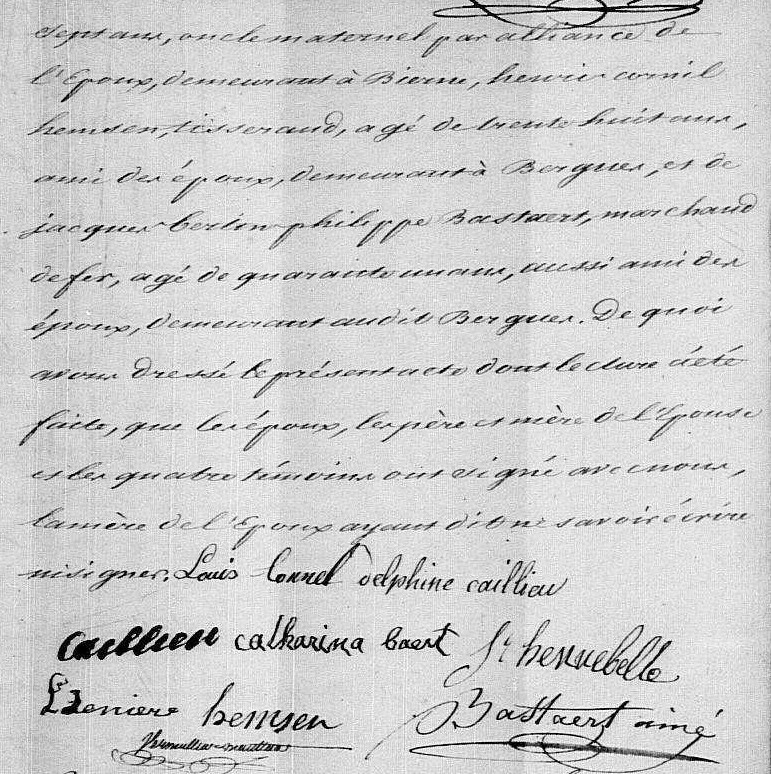 Sept ans, oncle maternel par alliance de
l'Epoux, demeurant à Bierne, henri cornil
hemsen, tisserand, agé de trente huit ans,
ami des époux, demeurant à Bergues, et de
jacques bertin philippe Bastaert, marchand
de fer, agé de quarante un ans, aussi ami des
époux, demeurant audit Bergues. De quoi
avons dressé le présent acte dont lecture a été
faite, que les époux, les père et mère de l'Epouse
et les quatre témoins ont signé avec nous,
la mère de l'Epoux ayant dit ne savoir écrire
ni signer. Louis Connel delphine caillieu
Caillieu catharina baert St hennebelle
hemsen Bastaert ainé